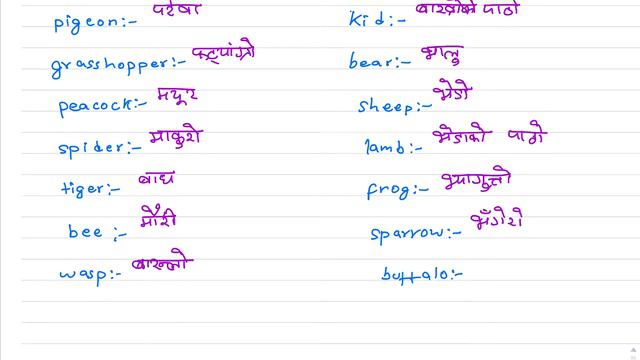 pigeon:- परेवा
grasshopper:- फट्यांग्रो
peacock:- मयूर
spider:- माकुरो
tiger:- बाघ
bee:- मौरी
wasp:- बारुलो
kid:- बाख्राको पाठो
bear:- भालु
sheep:- भेडो
lamb:- भेडाको पाठो
frog:- भ्यागुत्तो
sparrow:- भँगेरो
buffalo:-